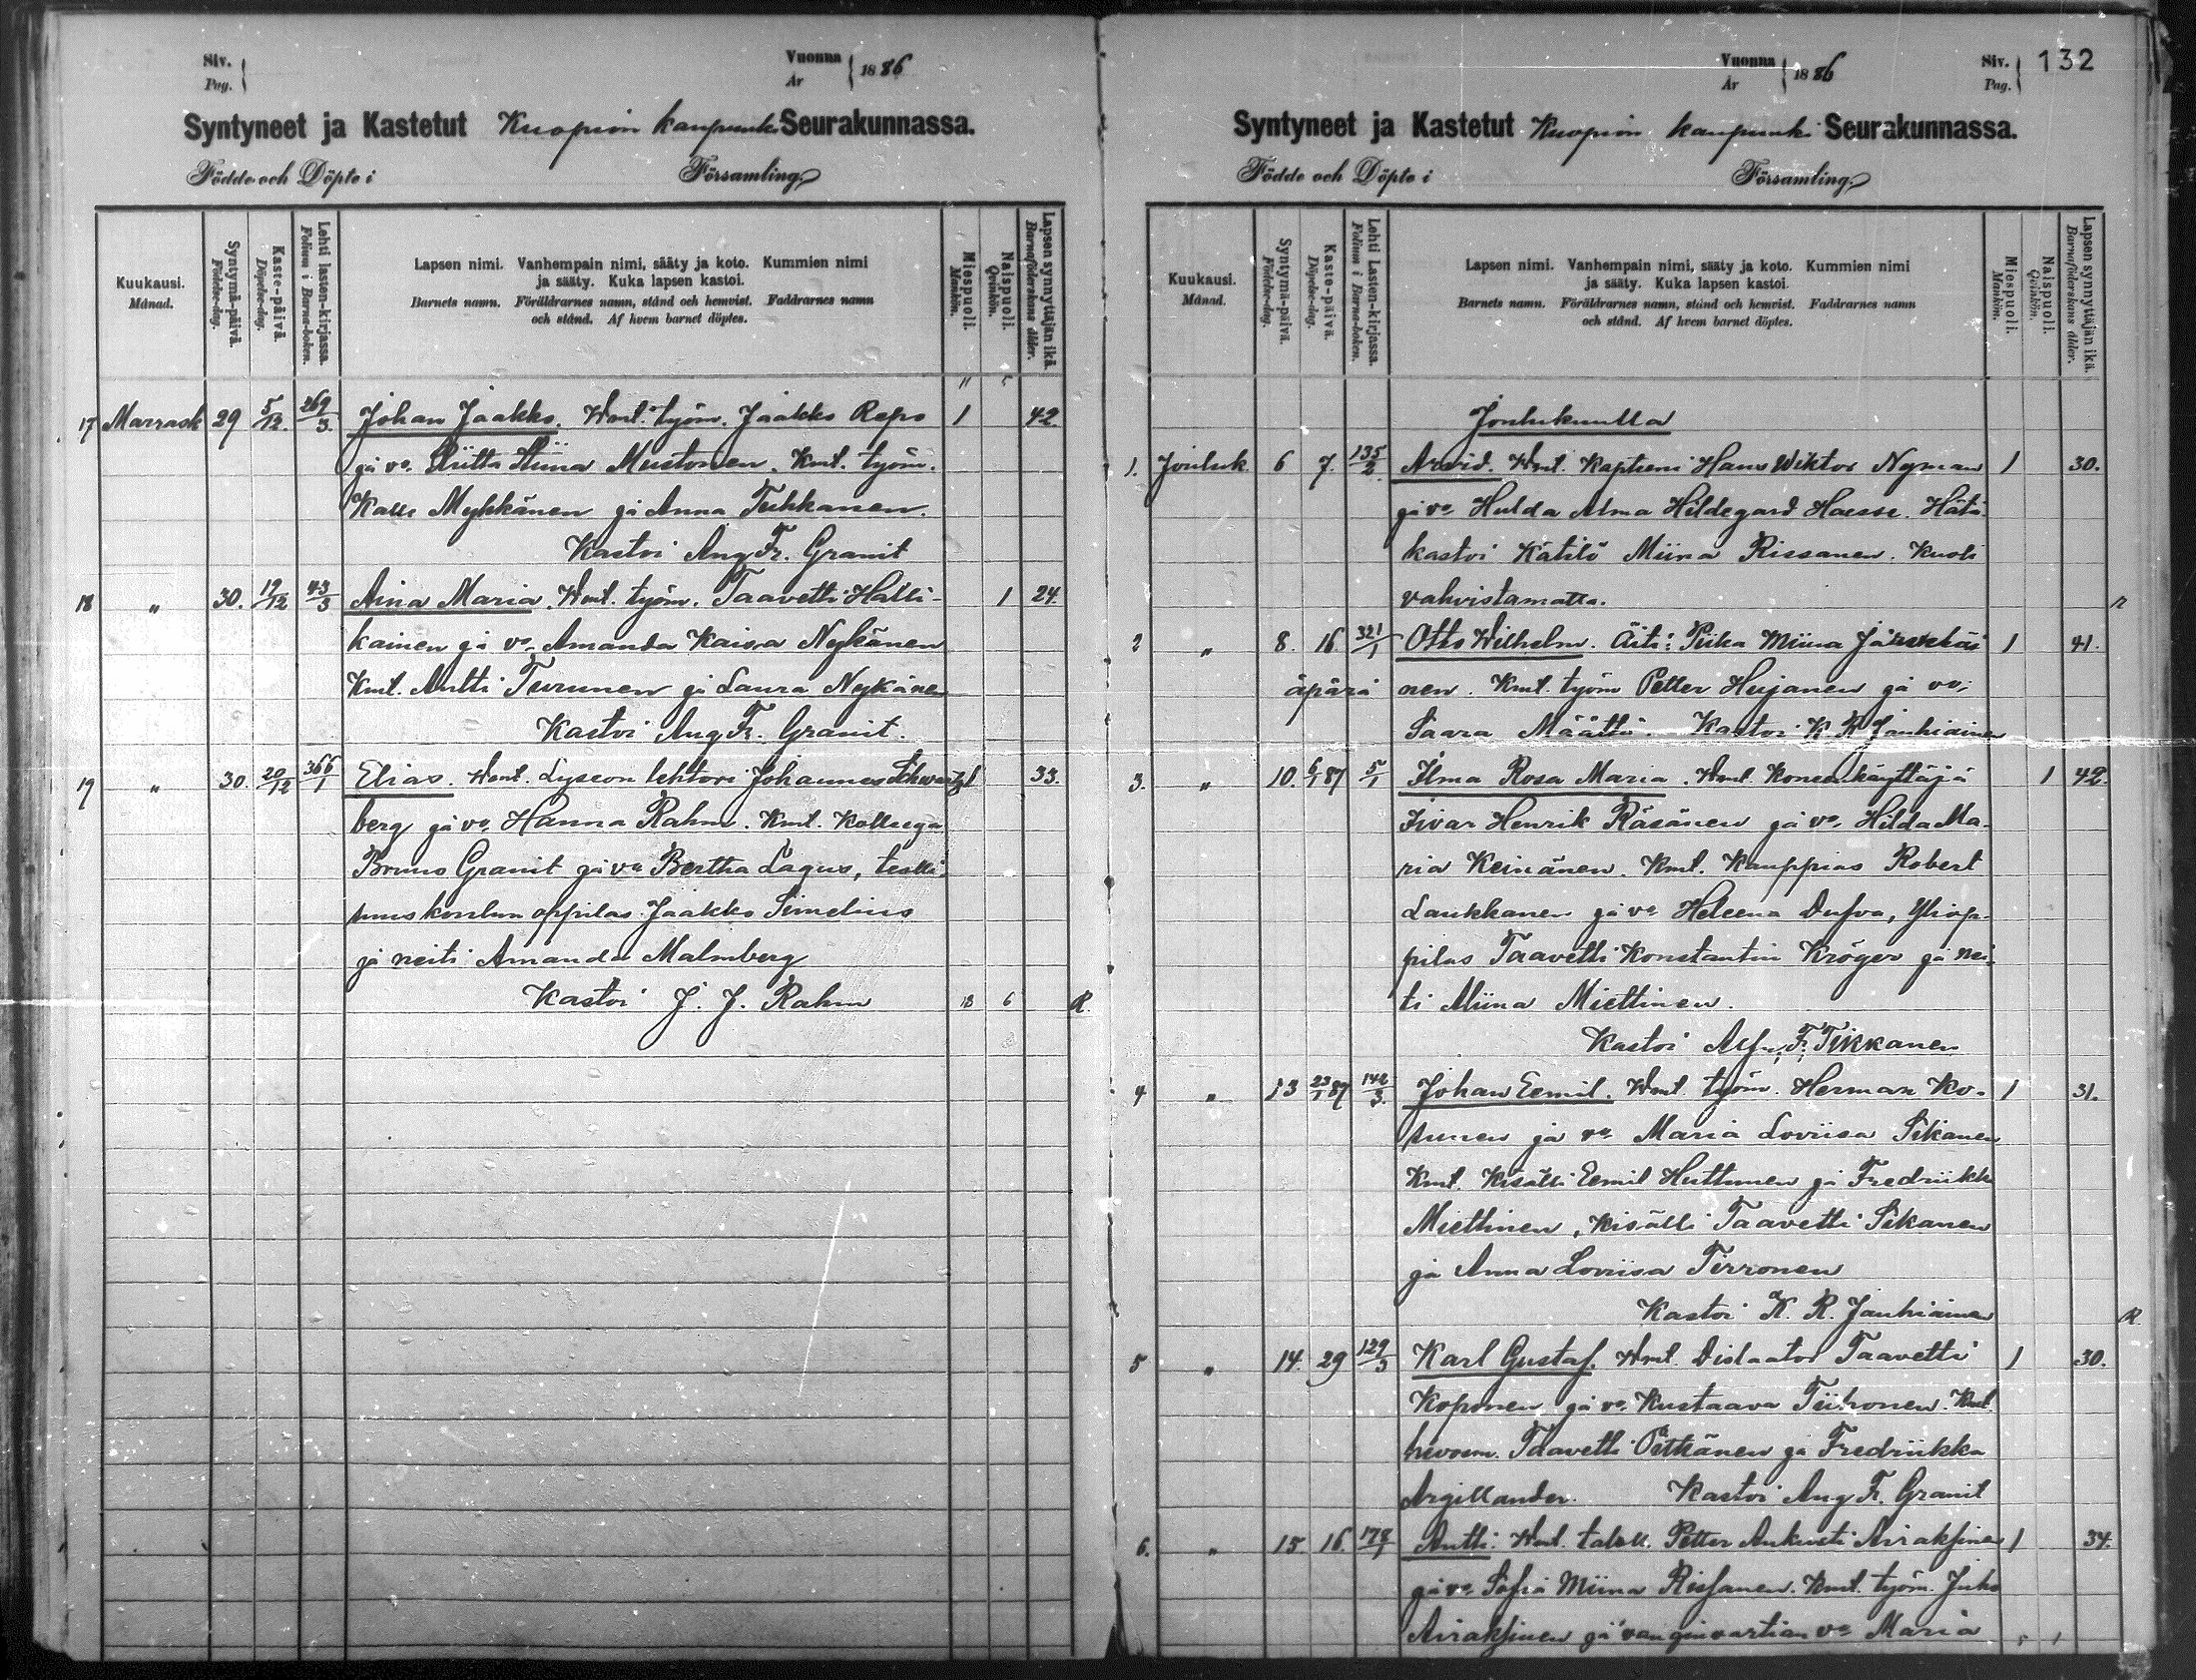 Siv.
Pag.
Vuonna
År
1886
Syntyneet ja Kastetut Kuopion kaupunki Seurakunnassa.
Födde och Döpte i Församling.
Kuukausi.
Månad.
Syntymä-päivä.
Födelse-dag.
Kaste-päivä.
Döpelse-dag.
Lehti lasten-kirjassa.
Folium i Barna-boken.
Lapsen nimi. Vanhempain nimi, sääty ja koto. Kummien nimi
ja sääty. Kuka lapsen kastoi.
Barnets namn. Föräldrarnes namn, stånd och hemvist. Faddrarnes namn
och stånd. Af hvem barnet döptes.
Miespuoli.
Mankön.
Naispuoli.
Qvinkön.
Lapsen synnyttäjän ikä.
Barnaföderskans ålder.
17 Marrask 29 5/12. 269/3. Johan Jaakko. Wmt. työm. Jaakko Repo 1 42.
ja vo. Riitta Stiina Mustonen. Kmt. työm.
Kalle Mykkänen ja Anna Tuhkanen.
Kastoi Aug. Fr. Granit
18 " 30. 19/12 43/3 Aina Maria. Wmt. työm. Taavetti Halli- 1 24.
kainen ja vo. Amanda Kaisa Nykänen
Kmt. Antti Turunen ja Laura Nykänen
Kastoi Aug. Fr. Granit.
19 " 30. 20/12 366/1 Elias. Wmt. Lyseon lehtori Johannes Schwartz 1 33.
berg ja vo. Hanna Rahm. Kmt. Kollega
Bruno Granit ja vo Bertha Lagus, teolli-
suuskoulun oppilas Jaakko Simelius
ja neiti Amanda Malmberg
Kastoi J. J. Rahm 13 6 R.
Vuonna
År
1886
Siv.
Pag.
132
Syntyneet ja Kastetut Kuopion kaupunki Seurakunnassa.
Födde och Döpte i Församling.
Kuukausi.
Månad.
Syntymä-päivä.
Födelse-dag.
Kaste-päivä.
Döpelse-dag.
Lehti Lasten-kirjassa.
Folium i Barna-boken.
Lapsen nimi. Vanhempain nimi, sääty ja koto. Kummien nimi
ja sääty. Kuka lapsen kastoi.
Barnets namn. Föräldrarnes namn, stånd och hemvist. Faddrarnes namn
och stånd. Af hvem barnet döptes.
Miespuoli.
Mankön.
Naispuoli.
Qvinkön.
Lapsen synnyttäjän ikä.
Barnaföderskans ålder.
Joulukuulla
1. Jouluk. 6 7. 135/2. Arvid. Wmt. Kapteeni Hans Wiktor Nyman 1 30.
ja vo. Hulda Alma Hildegard Haesse. Hätä-
kastoi Kätilö Miina Rissanen. Kuoli
vahvistamatta.
2 " 8. 16 321/1 Otto Wilhelm. Äiti: Piika Miina Jääskeläi 1 41.
äpärä nen. Kmt. työm Petter Heijanen ja vo.
Saara Määttä. Kastoi K. R. Jauhiainen
3. " 10. 6/1 87 5/1 Ilma Rosa Maria. Wmt. Koneenkäyttäjä 1 42.
Iivar Henrik Räsänen ja vo. Hilda Ma-
ria Keinänen. Kmt. Kauppias Robert
Laukkanen ja vo Heleena Dufva, Yliop-
pilas Taavetti Konstantin Kröger ja nei-
ti Miina Miettinen.
Kastoi F. Tikkanen
4 " 13 23/1 87 142/3. Johan Eemil. Wmt. työm. Herman Ko- 1 31.
sunen ja vo. Maria Loviisa Sikanen
Kmt. Kisälli Eemil Huttunen ja Fredriikka
Miettinen, Kisälli Taavetti Sikanen
ja Anna Loviisa Tirronen
Kastoi K. R. Jauhiainen R
5 " 14. 29 129/3 Karl Gustaf. Wmt. Taavetti 1 30.
Koponen ja vo. Kustaava Tiihonen. Kmt.
hevosm. Taavetti Pitkänen ja Fredriikka
Argillander. Kastoi Aug F. Granit
6. " 15 16. 178/1 Antti. Wmt. taloll. Petter Aukusti Airaksinen 1 34.
ja vo. Sofia Miina Rissanen. Kmt. työm. Juho
Airaksinen ja vanginvartian vo Maria